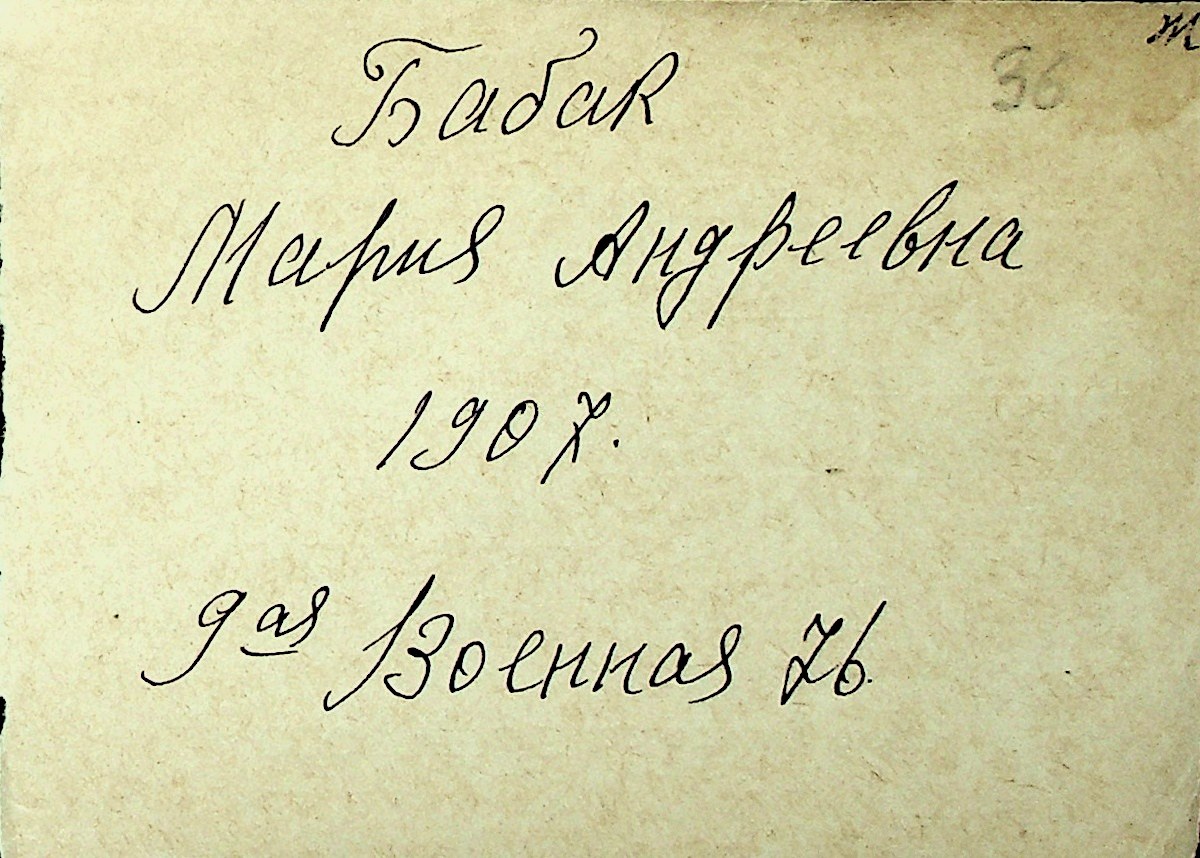 36
Бабак
Мария Андреевна
1907.
9ая Военная 76.